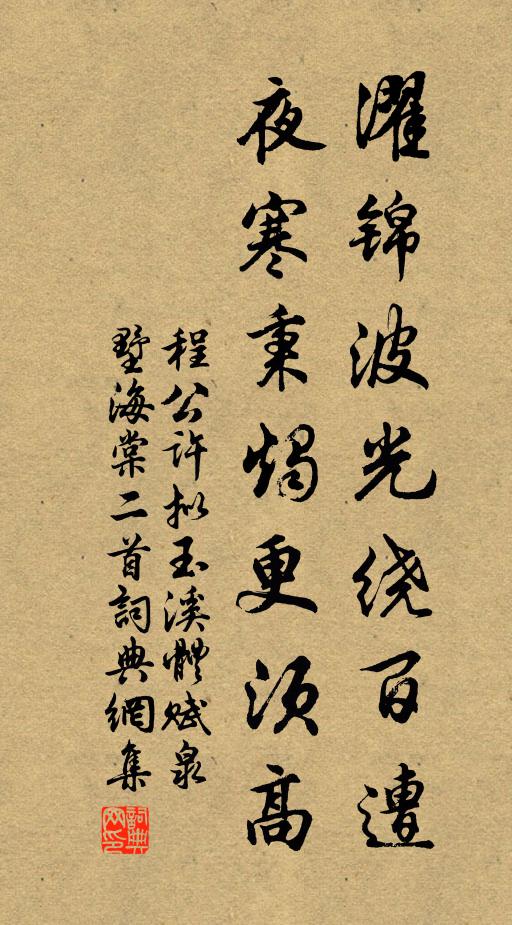 濯锦波光绕百遭
夜寒秉烛更须高
程公许拟玉溪體赋泉
墅海棠二首詞典網集
詞典网印